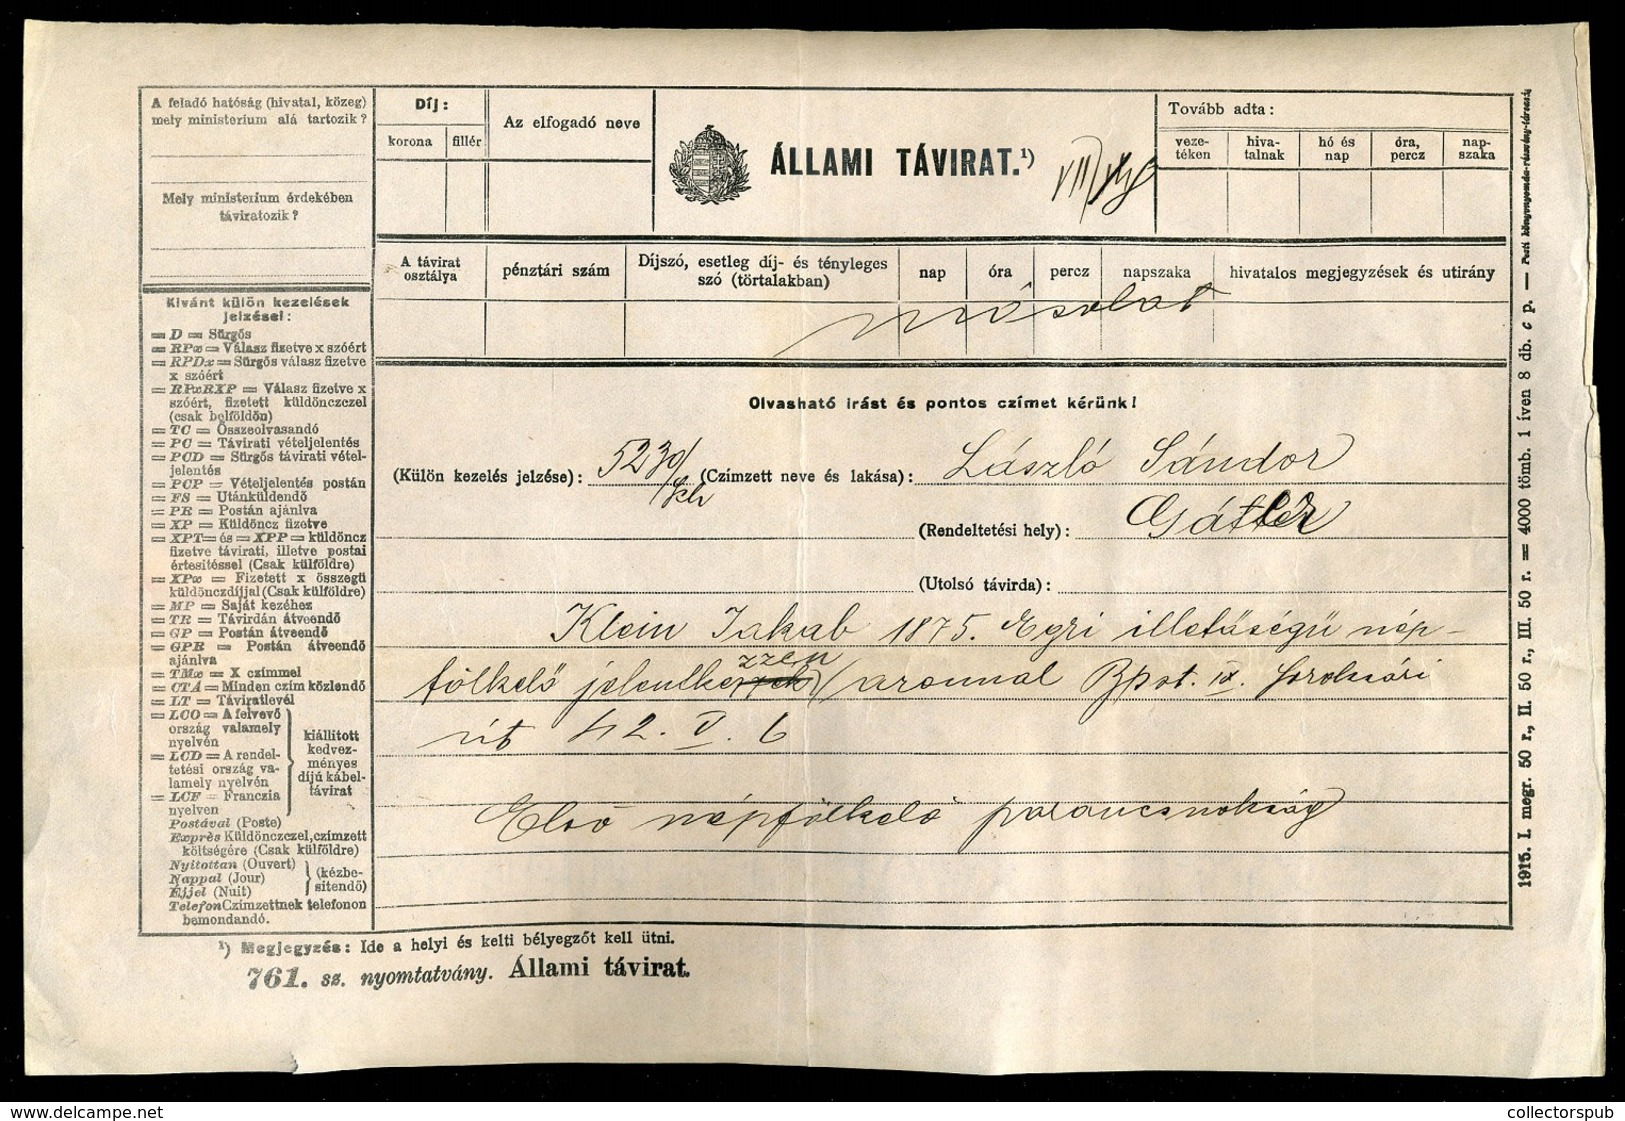 A feladó hatóság (hivatal, közeg)
mely ministerium alá tartozik?
Mely ministerium érdekében
táviratozik?
Díj:
korona fillér
Az elfogadó neve
ÁLLAMI TÁVIRAT.¹)
VII/
Tovább adta:
veze-
téken
hiva-
talnak
hó és
nap
óra,
percz
nap-
szaka
A távirat
osztálya
pénztári szám
Díjszó, esetleg díj- és tényleges
szó (törtalakban)
nap
óra
percz
napszaka
hivatalos megjegyzések és utirány
másolat
Kivánt külön kezelések
jelzései:
= D = Sürgős
= RPx = Válasz fizetve x szóért
= RPDx = Sürgős válasz fizetve
x szóért
= RPxRXP = Válasz fizetve x
szóért, fizetett küldönczczel
(csak belföldön)
= TC = Összeolvasandó
= PC = Távirati vételjelentés
= PCD = Sürgős távirati vétel-
jelentés
= PCP = Vételjelentés postán
= FS = Utánküldendő
= PR = Postán ajánlva
= XP = Küldöncz fizetve
= XPT = és = XPP = küldöncz
fizetve távirati, illetve postai
értesitéssel (Csak külföldre)
= XPx = Fizetett x összegü
küldönczdíjjal (Csak külföldre)
= MP = Saját kezéhez
= TR = Távirdán átveendő
= GP = Postán átveendő
= GPR = Postán átveendő
ajánlva
= TMx = X czímmel
= CTA = Minden czím közlendő
= LT = Táviratlevél
= LCO = A felvevő
ország valamely
nyelvén
= LCD = A rendel-
tetési ország va-
lamely nyelvén
= LCF = Franczia
nyelven
kiállitott
kedvez-
ményes
díjú kábel-
távirat
Postával (Poste)
Exprès Küldönczczel, czímzett
költségére (Csak külföldre)
Nyitottan (Ouvert)
Nappal (Jour)
Éjjel (Nuit)
(kézbe-
sitendő)
Telefon Czímzettnek telefonon
bemondandó.
Olvasható irást és pontos czímet kérünk!
(Külön kezelés jelzése): 5230/ (Czímzett neve és lakása): László Sándor
(Rendeltetési hely): Gátér
(Utolsó távirda):
Klein Jakab 1875. Egri illetőségű nép-
fölkelő jelentkezzen azonnal Bpst. IX. Soroksári
út 42. V. 6
Első népfölkelő parancsnokság
¹) Megjegyzés: Ide a helyi és kelti bélyegzőt kell ütni.
761. sz. nyomtatvány. Állami távirat.
1915. I. megr. 50 r., II. 50 r., III. 50 r. = 4000 tömb. 1 íven 8 db. c p. — Pesti könyvnyomda-részvény-társaság
https://www.delcampe.net
collectorspub